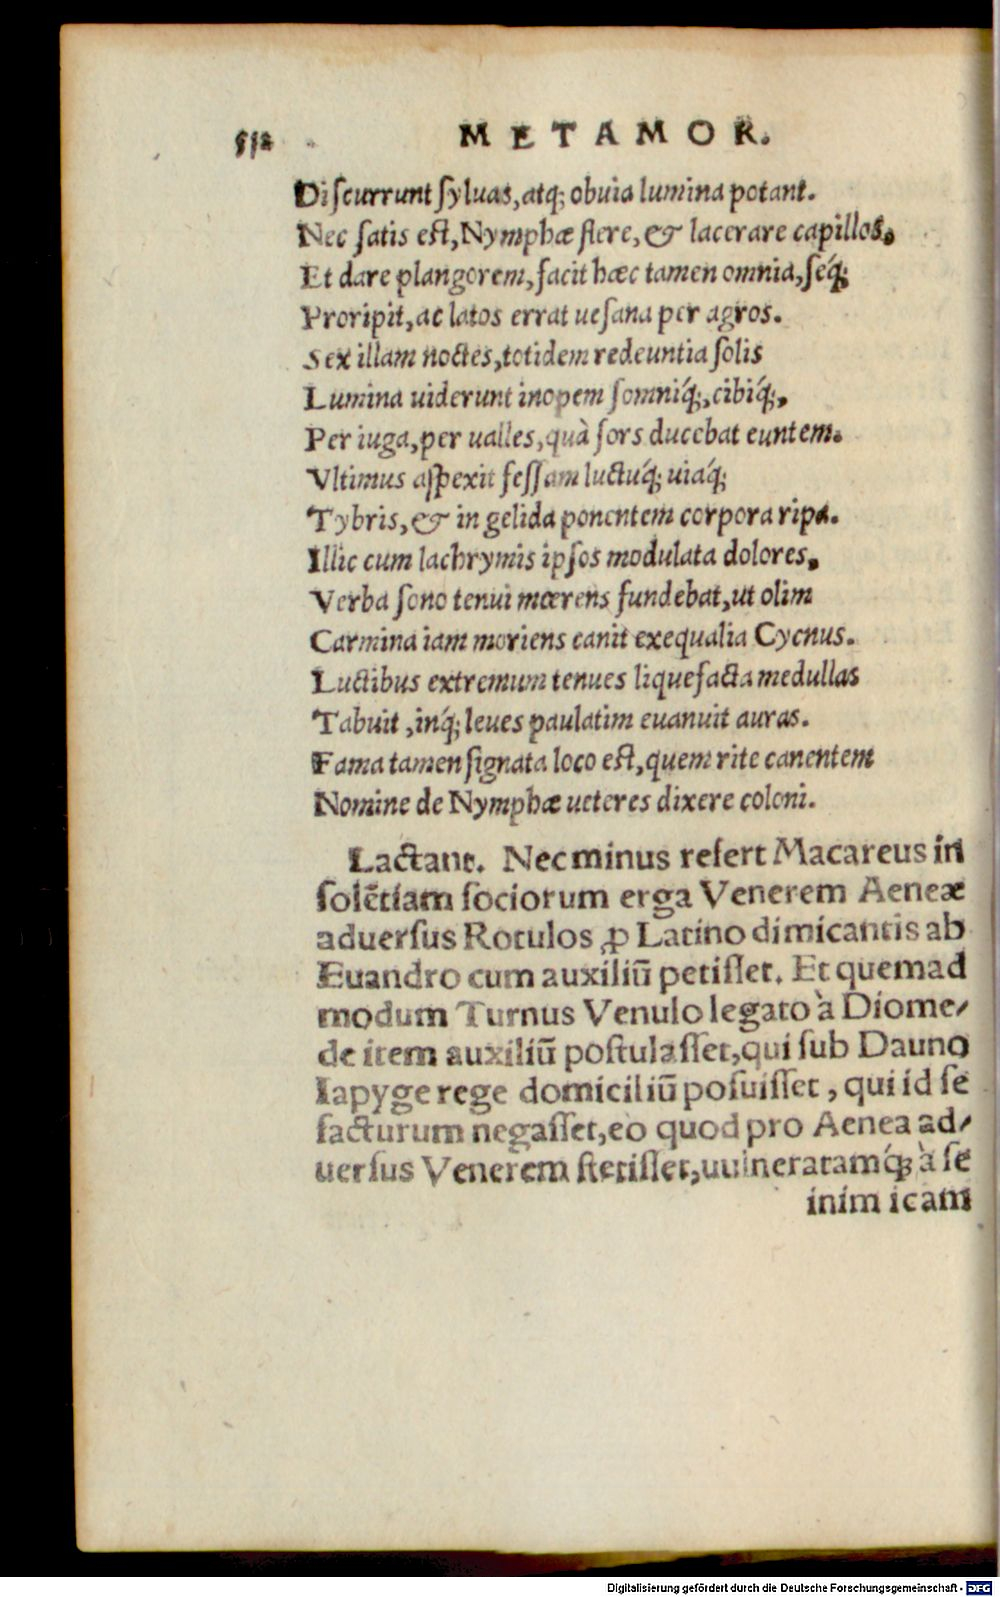 552 METAMOR.
Diſcurrunt ſyluas, atq; obuia lumina potant.
Nec ſatis eſt, Nymphæ flere, & lacerare capillos,
Et dare plangorem, facit hæc tamen omnia, ſéq;
Proripit, ac latos errat ueſana per agros.
Sex illam noctes, totidem redeuntia ſolis
Lumina uiderunt inopem ſomníq;, cibíq;,
Per iuga, per ualles, quà fors ducebat euntem.
Vltimus aſpexit feſſam luctúq; uiáq;
Tybris, & in gelida ponentem corpora ripa.
Illic cum lachrymis ipſos modulata dolores,
Verba ſono tenui mœrens fundebat, ut olim
Carmina iam moriens canit exequalia Cycnus.
Luctibus extremum tenues liquefacta medullas
Tabuit, inq́; leues paulatim euanuit auras.
Fama tamen ſignata loco eſt, quem rite canentem
Nomine de Nymphæ ueteres dixere coloni.
Lactant. Nec minus refert Macareus in
ſolẽtiam ſociorum erga Venerem Aeneæ
aduerſus Rotulos ꝓ Latino dimicantis ab
Euandro cum auxiliũ petiſſet. Et quemad
modum Turnus Venulo legato à Diome⸗
de item auxiliũ poſtulaſſet, qui ſub Dauno
Iapyge rege domiciliũ poſuiſſet, qui id ſe
facturum negaſſet, eo quod pro Aenea ad⸗
uerſus Venerem ſtetiſſet, uulneratamq́; à ſe
inim icam
Digitalisierung gefördert durch die Deutsche Forschungsgemeinschaft - DFG